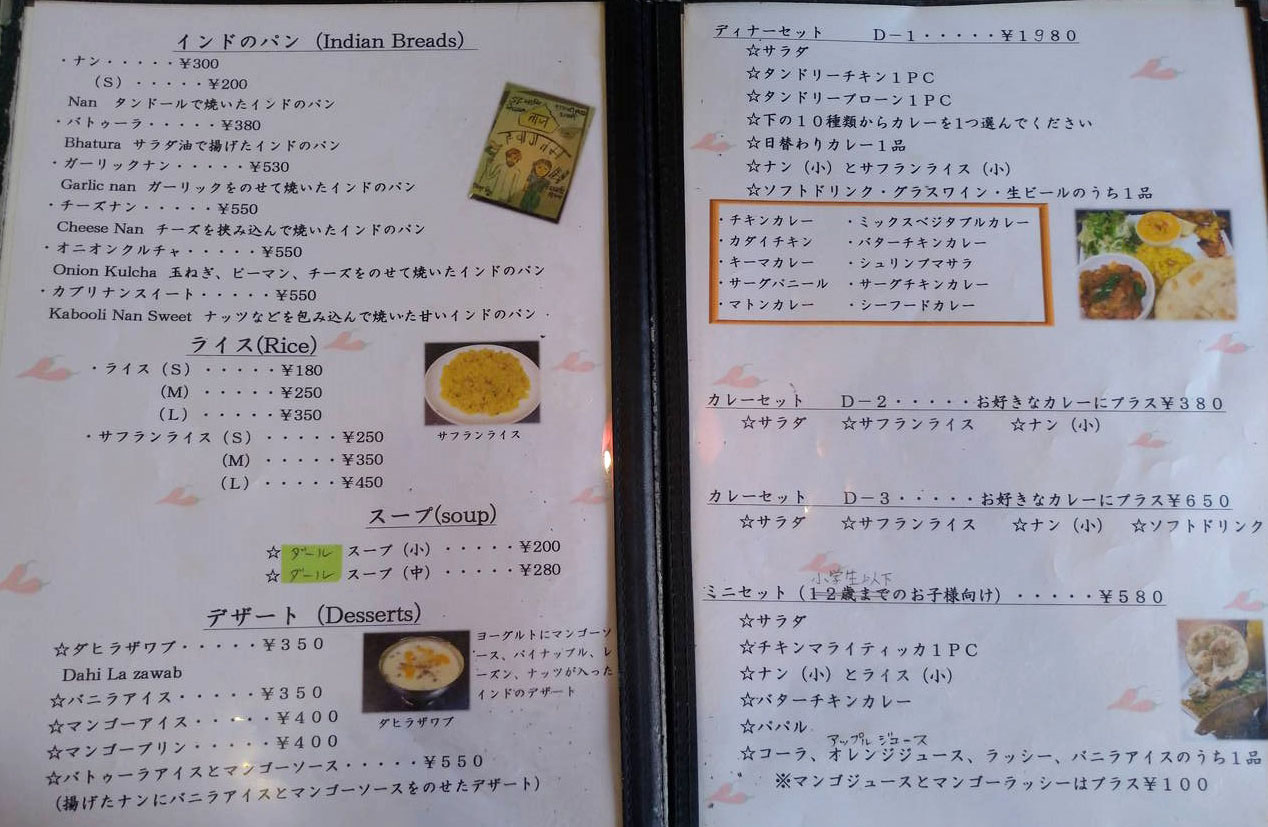 インドのパン (Indian Breads)
・ナン・・・・・¥300
(S)・・・・・¥200
Nan タンドールで焼いたインドのパン
・バトゥーラ・・・・・¥380
Bhatura サラダ油で揚げたインドのパン
・ガーリックナン・・・・・¥530
Garlic nan ガーリックをのせて焼いたインドのパン
・チーズナン・・・・・¥550
Cheese Nan チーズを挟み込んで焼いたインドのパン
・オニオンクルチャ・・・・・¥550
Onion Kulcha 玉ねぎ、ピーマン、チーズをのせて焼いたインドのパン
・カブリナンスイート・・・・・¥550
Kabooli Nan Sweet ナッツなどを包み込んで焼いた甘いインドのパン
ライス(Rice)
・ライス(S)・・・・・¥180
(M)・・・・・¥250
(L)・・・・・¥350
・サフランライス(S)・・・・・¥250
(M)・・・・・¥350
(L)・・・・・¥450
サフランライス
スープ(soup)
☆ダール スープ(小)・・・・・¥200
☆ダール スープ(中)・・・・・¥280
デザート (Desserts)
☆ダヒラザワブ・・・・・¥350
Dahi La zawab
☆バニラアイス・・・・・¥350
☆マンゴーアイス・・・・・¥400
☆マンゴープリン・・・・・¥400
☆バトゥーラアイスとマンゴーソース・・・・・¥550
(揚げたナンにバニラアイスとマンゴーソースをのせたデザート)
ダヒラザワブ
ヨーグルトにマンゴーソ
ース、パイナップル、レ
ーズン、ナッツが入った
インドのデザート
ディナーセット D-1・・・・・¥1980
☆サラダ
☆タンドリーチキン1PC
☆タンドリープローン1PC
☆下の10種類からカレーを1つ選んでください
☆日替わりカレー1品
☆ナン(小)とサフランライス(小)
☆ソフトドリンク・グラスワイン・生ビールのうち1品
・チキンカレー ・ミックスベジタブルカレー
・カダイチキン ・バターチキンカレー
・キーマカレー ・シュリンプマサラ
・サーグパニール ・サーグチキンカレー
・マトンカレー ・シーフードカレー
カレーセット D-2・・・・・お好きなカレーにプラス¥380
☆サラダ ☆サフランライス ☆ナン(小)
カレーセット D-3・・・・・お好きなカレーにプラス¥650
☆サラダ ☆サフランライス ☆ナン(小) ☆ソフトドリンク
小学生以下
ミニセット(12歳までのお子様向け)・・・・・¥580
☆サラダ
☆チキンマライティッカ1PC
☆ナン(小)とライス(小)
☆バターチキンカレー
☆パパル
アップルジュース
☆コーラ、オレンジジュース、ラッシー、バニラアイスのうち1品
※マンゴジュースとマンゴーラッシーはプラス¥100